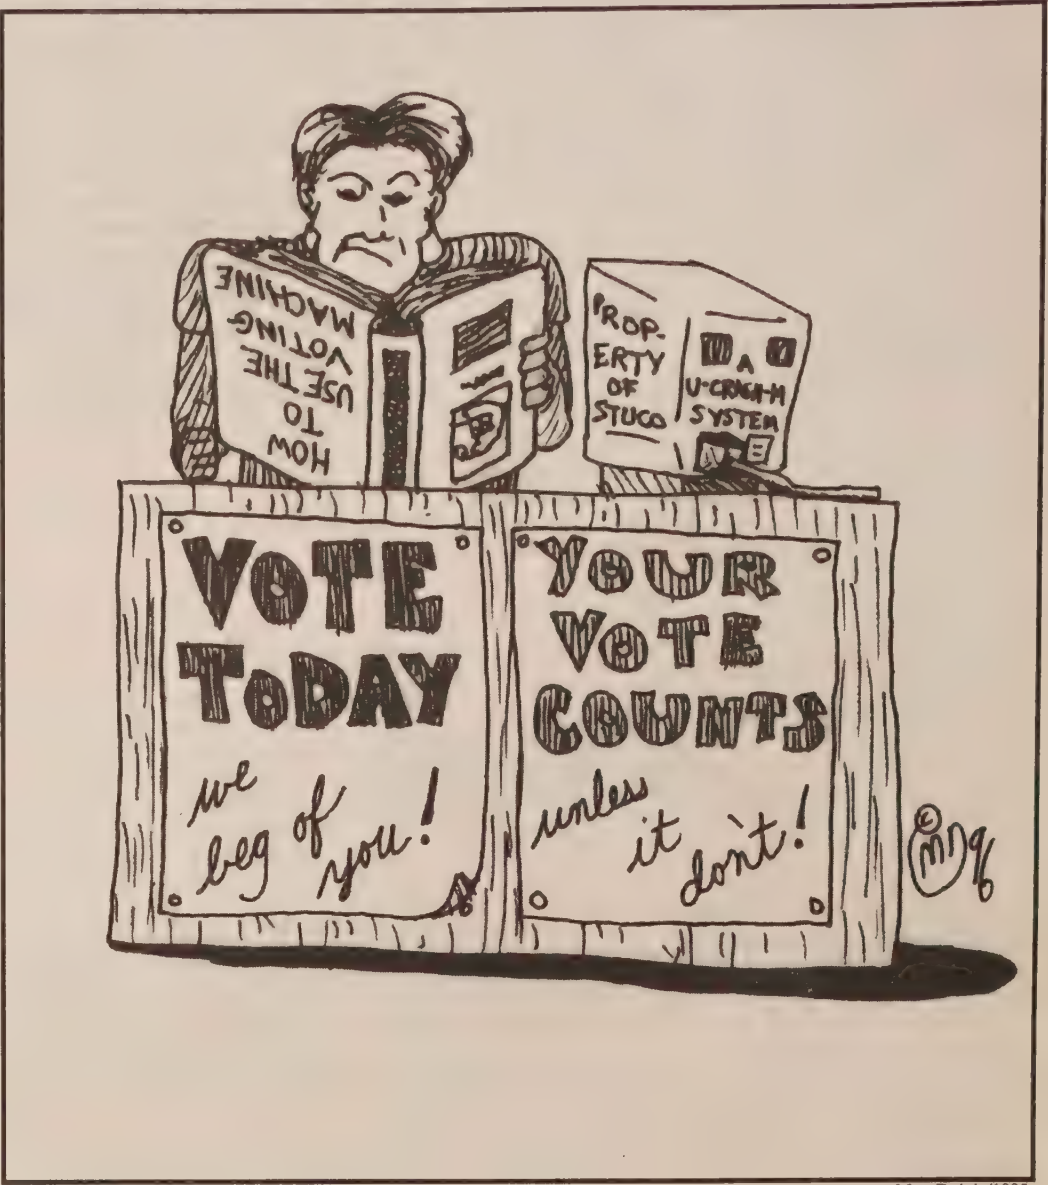 HOW
TO
USE THE
VOTING-
MACHINE
PROP-
ERTY
OF
STUCO
A
U-CRASH-M
SYSTEM
VOTE
TODAY
we
beg of
you!
YOUR
VOTE
COUNTS
unless
it
don't!
© MD 96